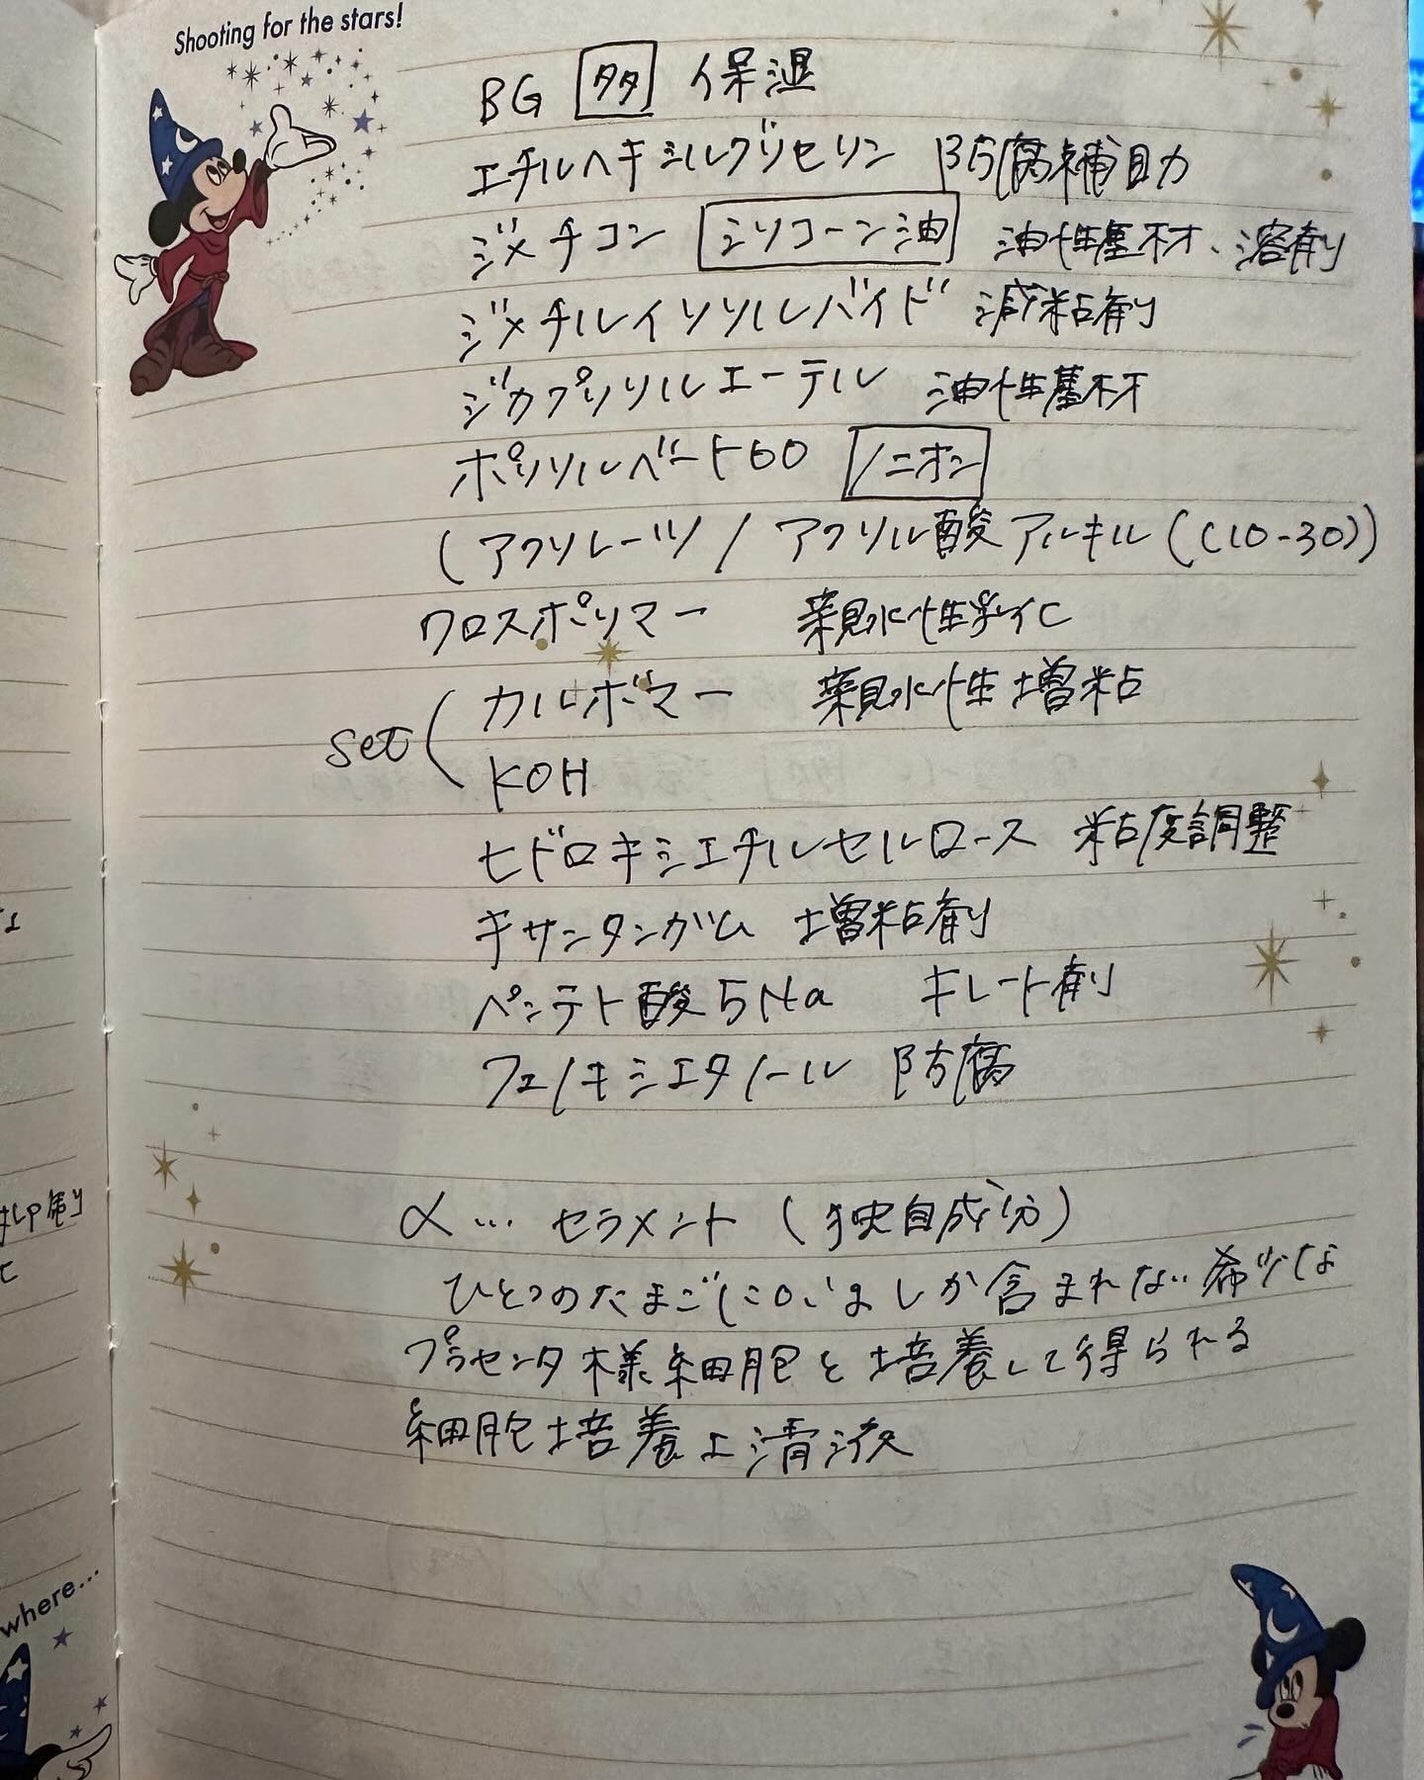 Shooting for the stars!
BG 多 保湿
エチルヘキシルグリセリン 防腐補助
ジメチコン シリコーン油 油性基材、溶剤
ジメチルイソソルバイド 減粘剤
ジカプリリルエーテル 油性基材
ポリソルベート60 ノニオン
(アクリレーツ/アクリル酸アルキル(C10-30))
クロスポリマー 親水性乳化
set ( カルボマー 親水性増粘
KOH
ヒドロキシエチルセルロース 粘度調整
キサンタンガム 増粘剤
ペンテト酸5Na キレート剤
フェノキシエタノール 防腐
α… セラメント (独自成分)
ひとつのたまごにしか含まれない希少な
プラセンタ様細胞を培養して得られる
細胞培養上清液
where...